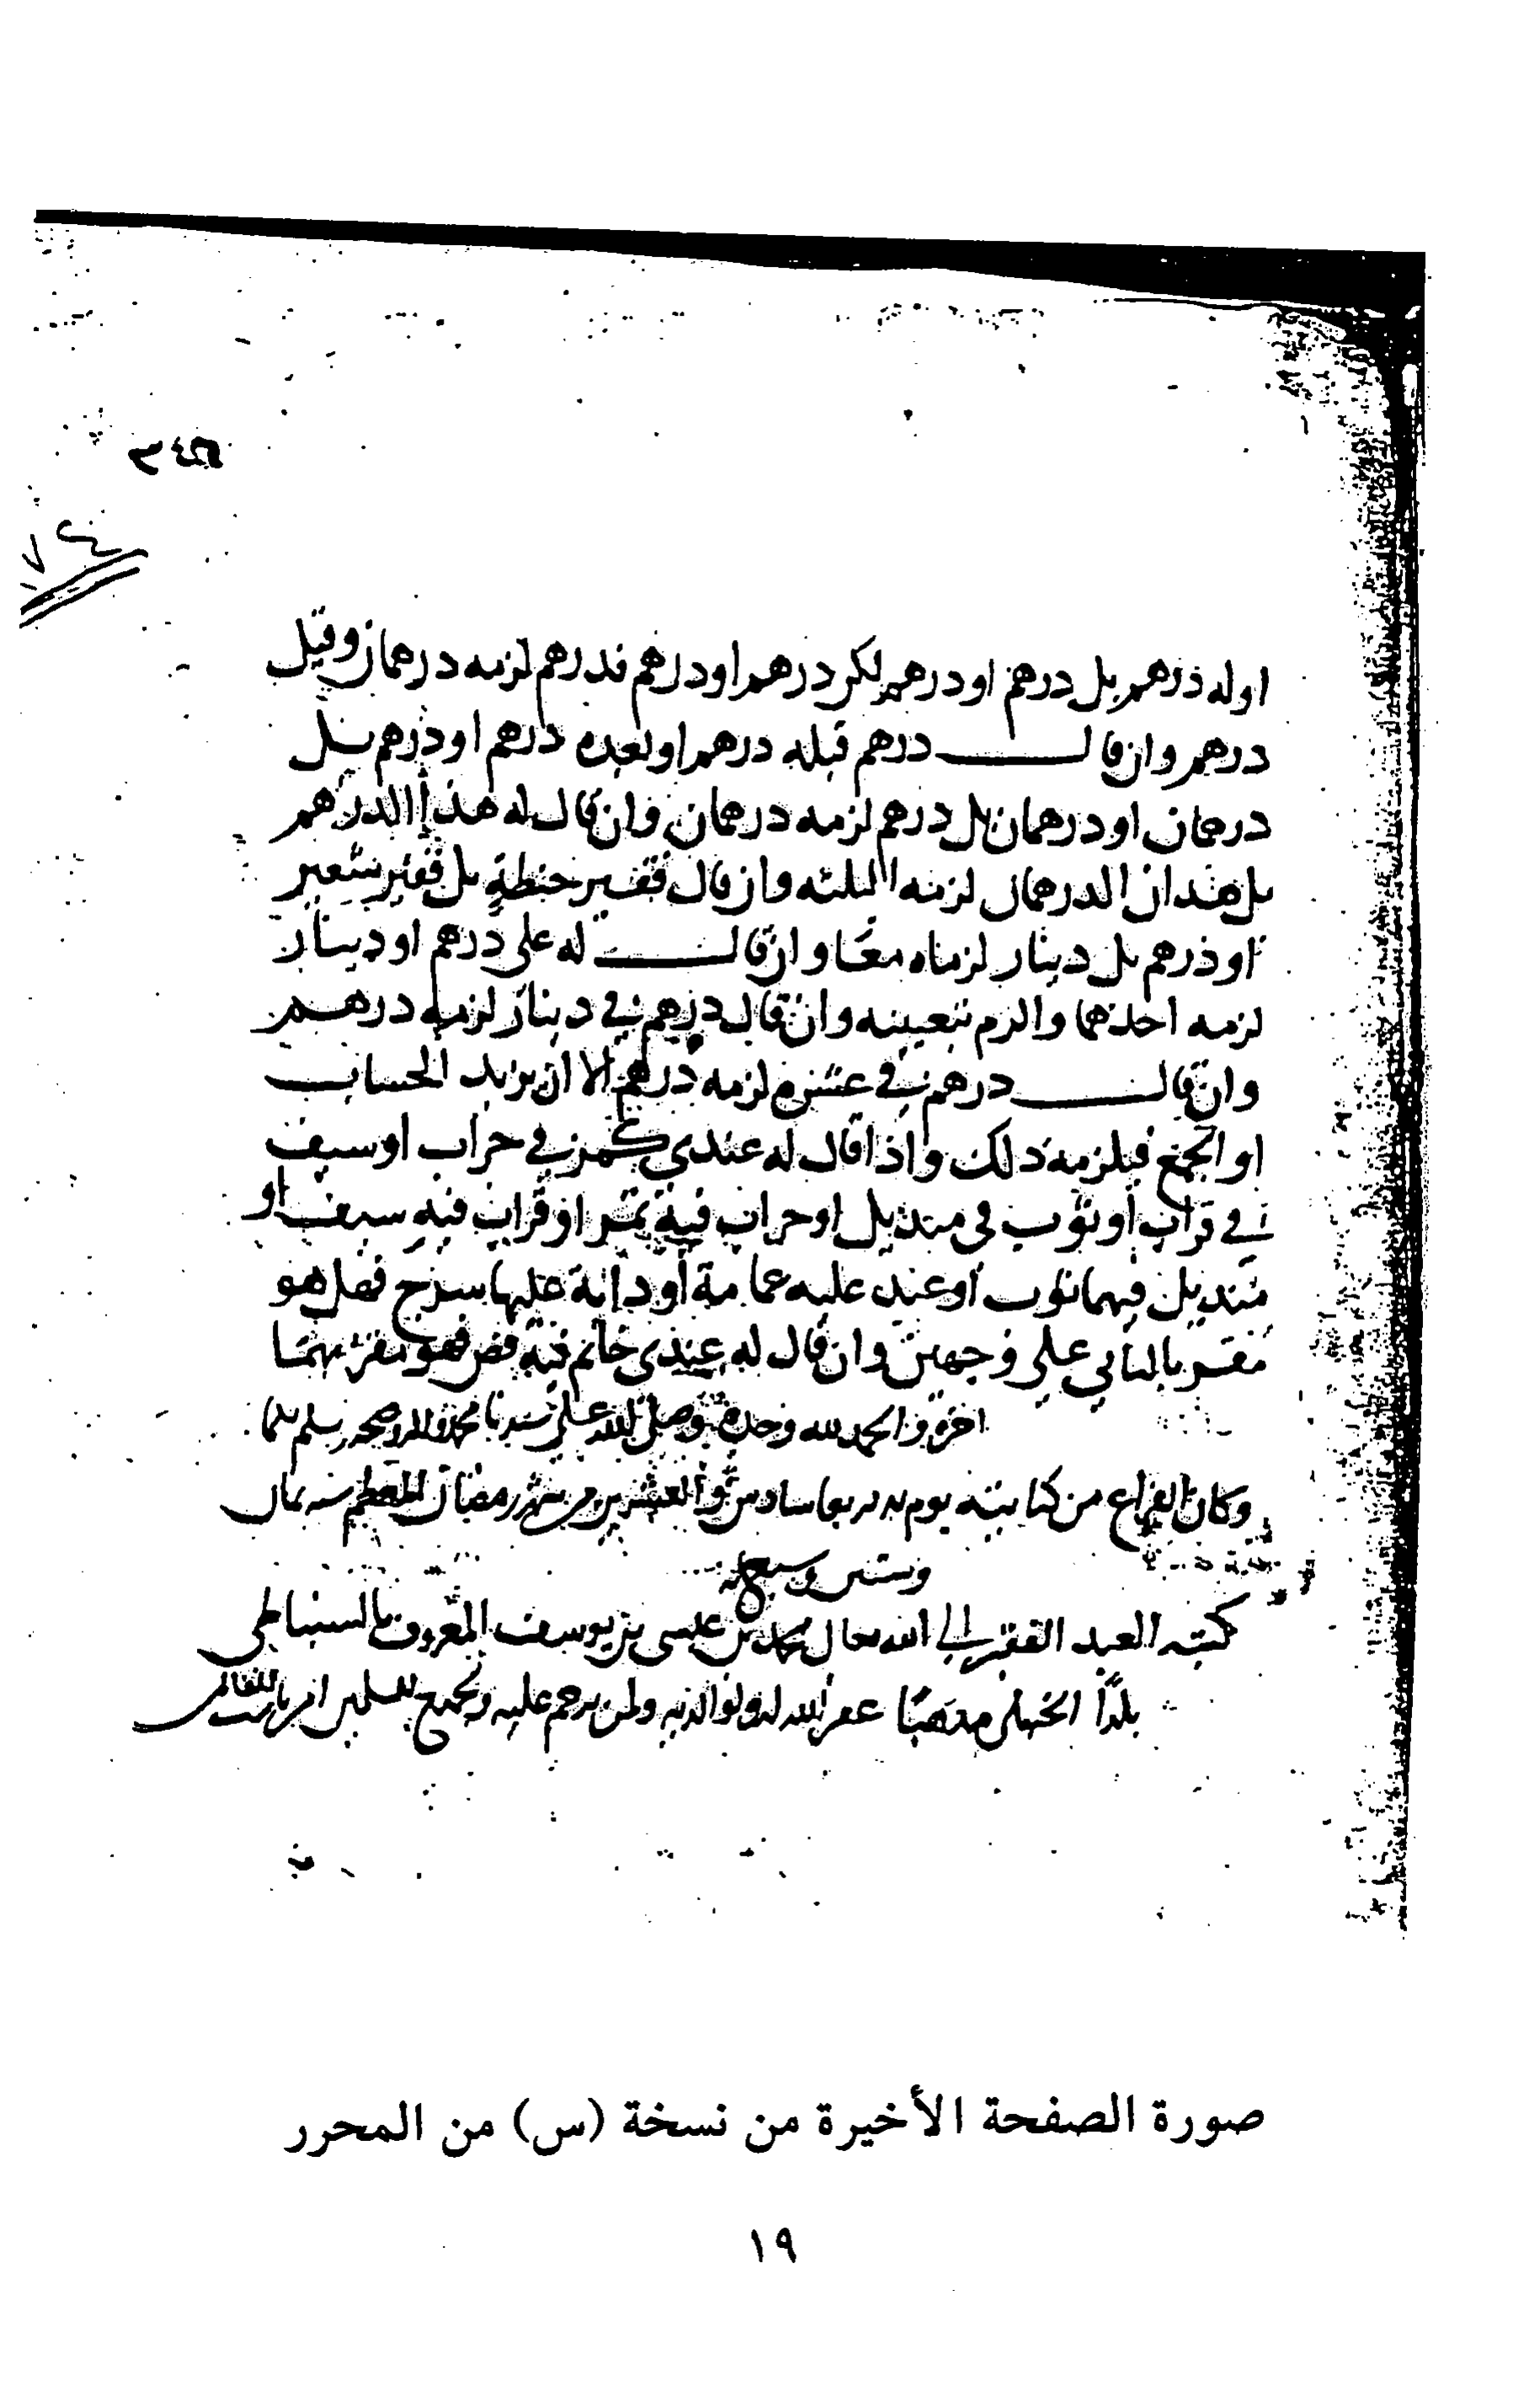 او له درهم بل درهم او درهم لكن درهم او درهم فدرهم لزمه درهمان وقيل
درهم وان قال درهم قبله درهم او بعده درهم او درهم بل
درهمان او درهمان بل درهم لزمه درهمان وان قال له هذا الدرهم
بل هذان الدرهمان لزمه الثلثه وان قال قفيز حنطة بل قفيز شعير
او درهم بل دينار لزماه معا وان قال له علي درهم او دينار
لزمه احدهما والزم بتعيينه وان قال درهم في دينار لزمه درهم
وان قال درهم في عشرة لزمه درهم الا ان يريد الحساب
او الجمع فيلزمه ذلك واذا قال له عندي تمر في جراب او سيف
في قراب او ثوب في منديل او جراب فيه تمر او قراب فيه سيف او
منديل فيها ثوب او عبد عليه عمامة او دابة عليها سرج فهل هو
مقر بالثاني على وجهين وان قال له عندي خاتم فيه فص فهو مقر بهما
اخره والحمد لله وحده وصلى الله على سيدنا محمد واله وصحبه وسلم
وكان الفراغ من كتابته يوم سادس والعشرين من شهر رمضان المعظم سنه ثمان
وستين وسبعمايه
كتبه العبد الفقير الى الله تعالى محمد بن عيسى بن يوسف المعروف بالسنباطي
بلدا الحنبلي مذهبا غفر الله له ولوالديه ولمن ترحم عليه ولجميع المسلمين امين
صورة الصفحة الأخيرة من نسخة (س) من المحرر
١٩